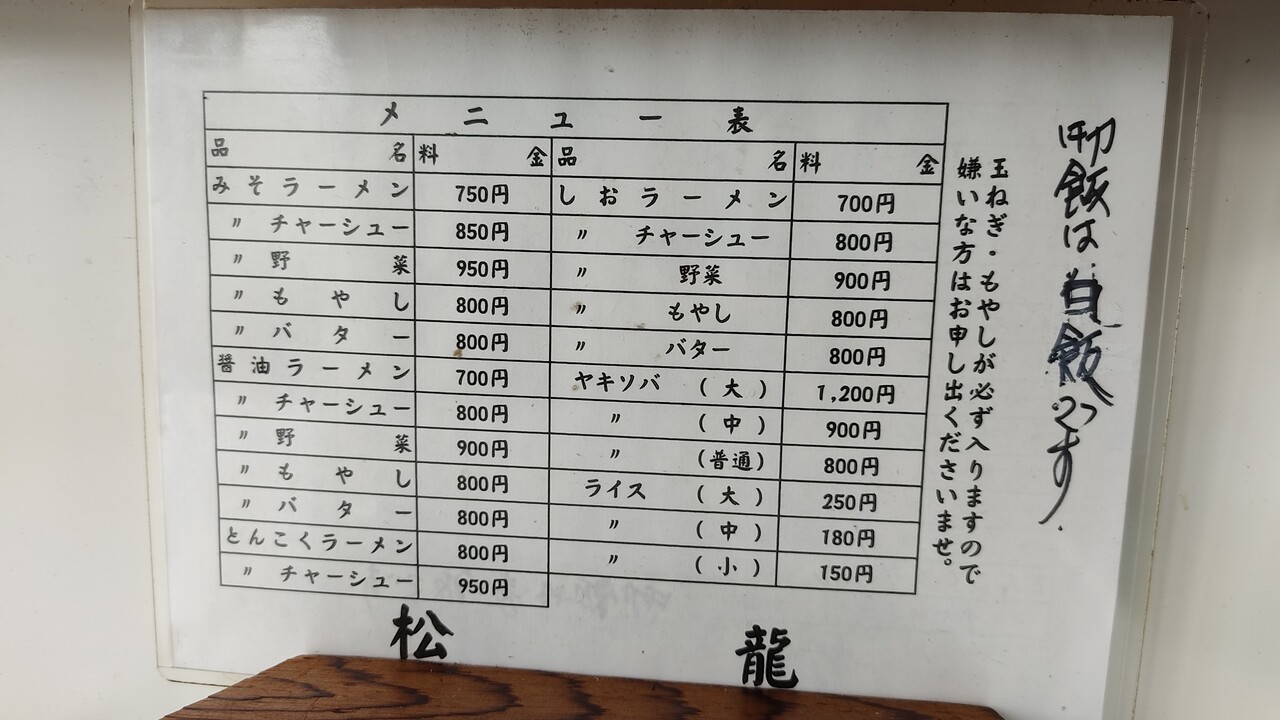 メニュー表
品名 料金 品名 料金
みそラーメン 750円 しおラーメン 700円
〃 チャーシュー 850円 〃 チャーシュー 800円
〃 野菜 950円 〃 野菜 900円
〃 もやし 800円 〃 もやし 800円
〃 バター 800円 〃 バター 800円
醤油ラーメン 700円 ヤキソバ (大) 1,200円
〃 チャーシュー 800円 〃 (中) 900円
〃 野菜 900円 〃 (普通) 800円
〃 もやし 800円 ライス (大) 250円
〃 バター 800円 〃 (中) 180円
とんこくラーメン 800円 〃 (小) 150円
〃 チャーシュー 950円
松龍
玉ねぎ・もやしが必ず入りますので
嫌いな方はお申し出くださいませ。
飯は白飯です